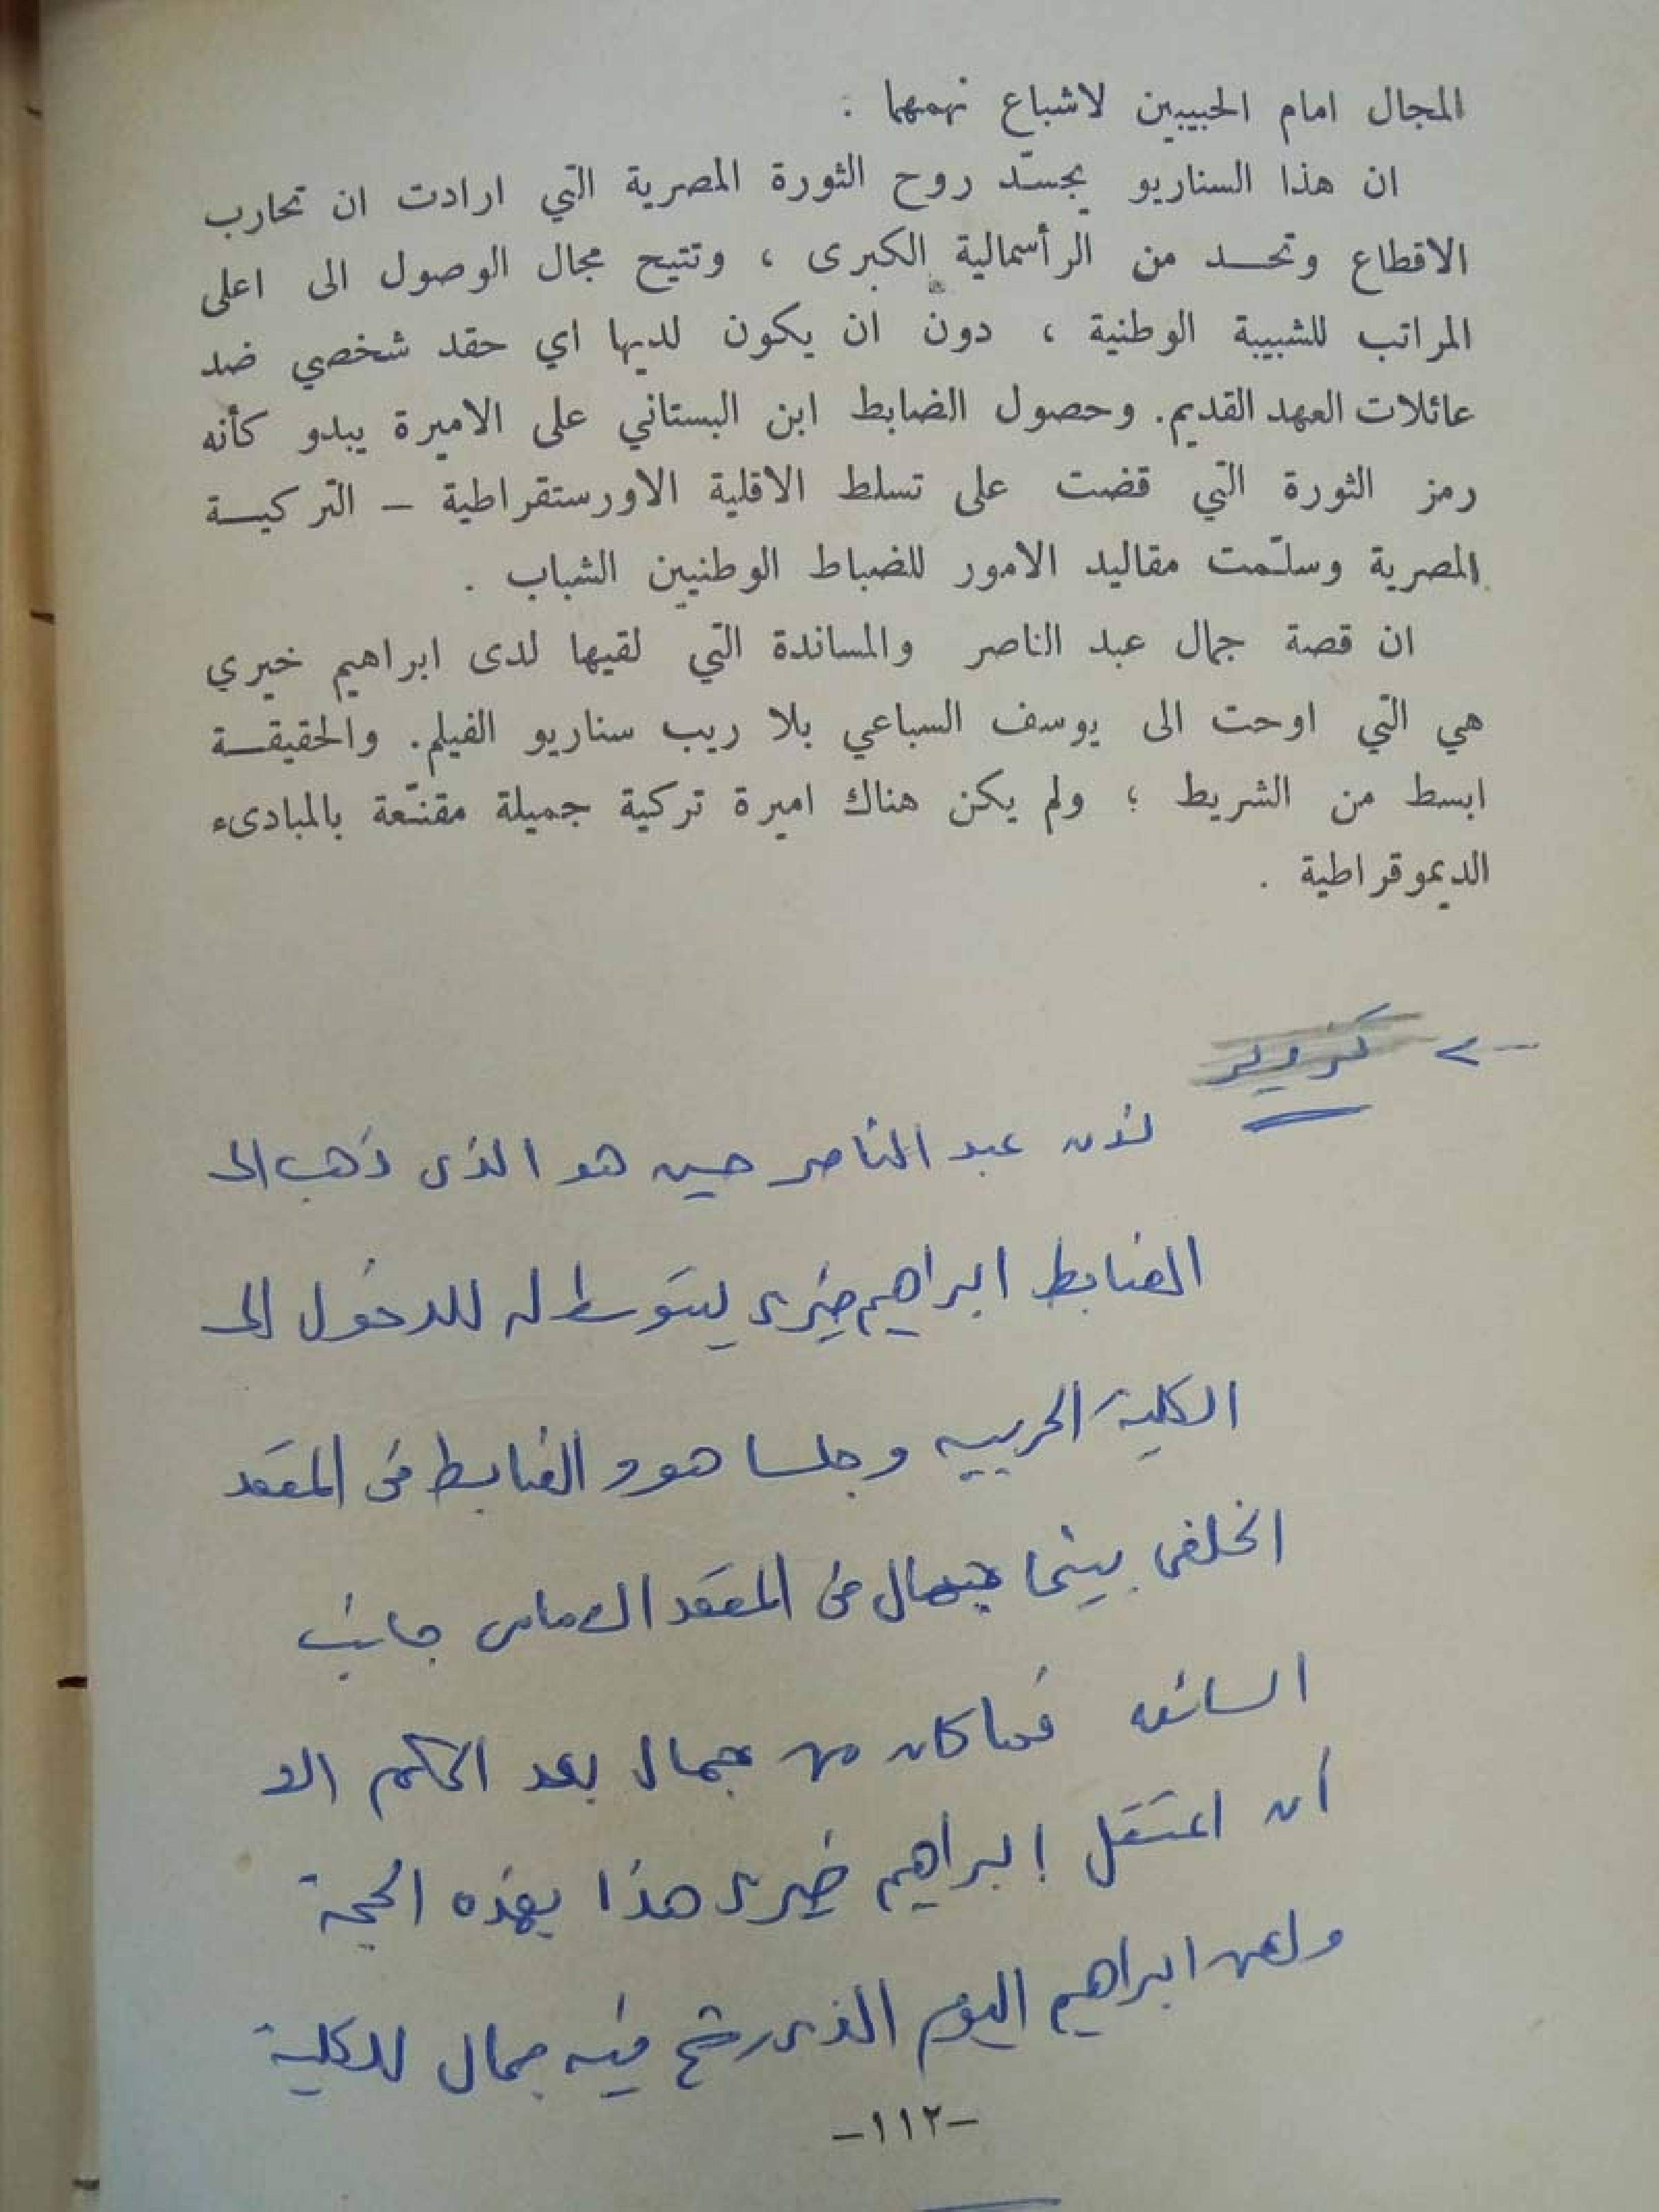 المجال امام الحبيبين لاشباع نهمهما .
ان هذا السناريو يجسّد روح الثورة المصرية التي ارادت ان تحارب
الاقطاع وتحـــد من الرأسمالية الكبرى ، وتتيح مجال الوصول الى اعلى
المراتب للشبيبة الوطنية ، دون ان يكون لديها اي حقد شخصي ضد
عائلات العهد القديم. وحصول الضابط ابن البستاني على الاميرة يبدو كأنه
رمز الثورة التي قضت على تسلط الاقلية الاورستقراطية – التركيـــة
المصرية وسلـّمت مقاليد الامور للضباط الوطنيين الشباب .
ان قصة جمال عبد الناصر والمساندة التي لقيها لدى ابراهيم خيري
هي التي اوحت الى يوسف السباعي بلا ريب سناريو الفيلم. والحقيقـــة
ابسط من الشريط ؛ ولم يكن هناك اميرة تركية جميلة مقنـّعة بالمبادىء
الديموقراطية .
لأن عبد الناصر حسين هو الذى ذهب الى
الضابط ابراهيم خيرى ليتوسط له للدخول إلى
الكلية الحربيه وجلسا هو و الضابط فى المقعد
الخلفى بينما جمال فى المقعد الأمامى جانب
السائق فما كان من جمال بعد الحكم إلا
أن اعتقل إبراهيم خيرى هذا بهذه الحجة
ولعن ابراهيم اليوم الذى رشح فيه جمال للكلية
–١١٢–